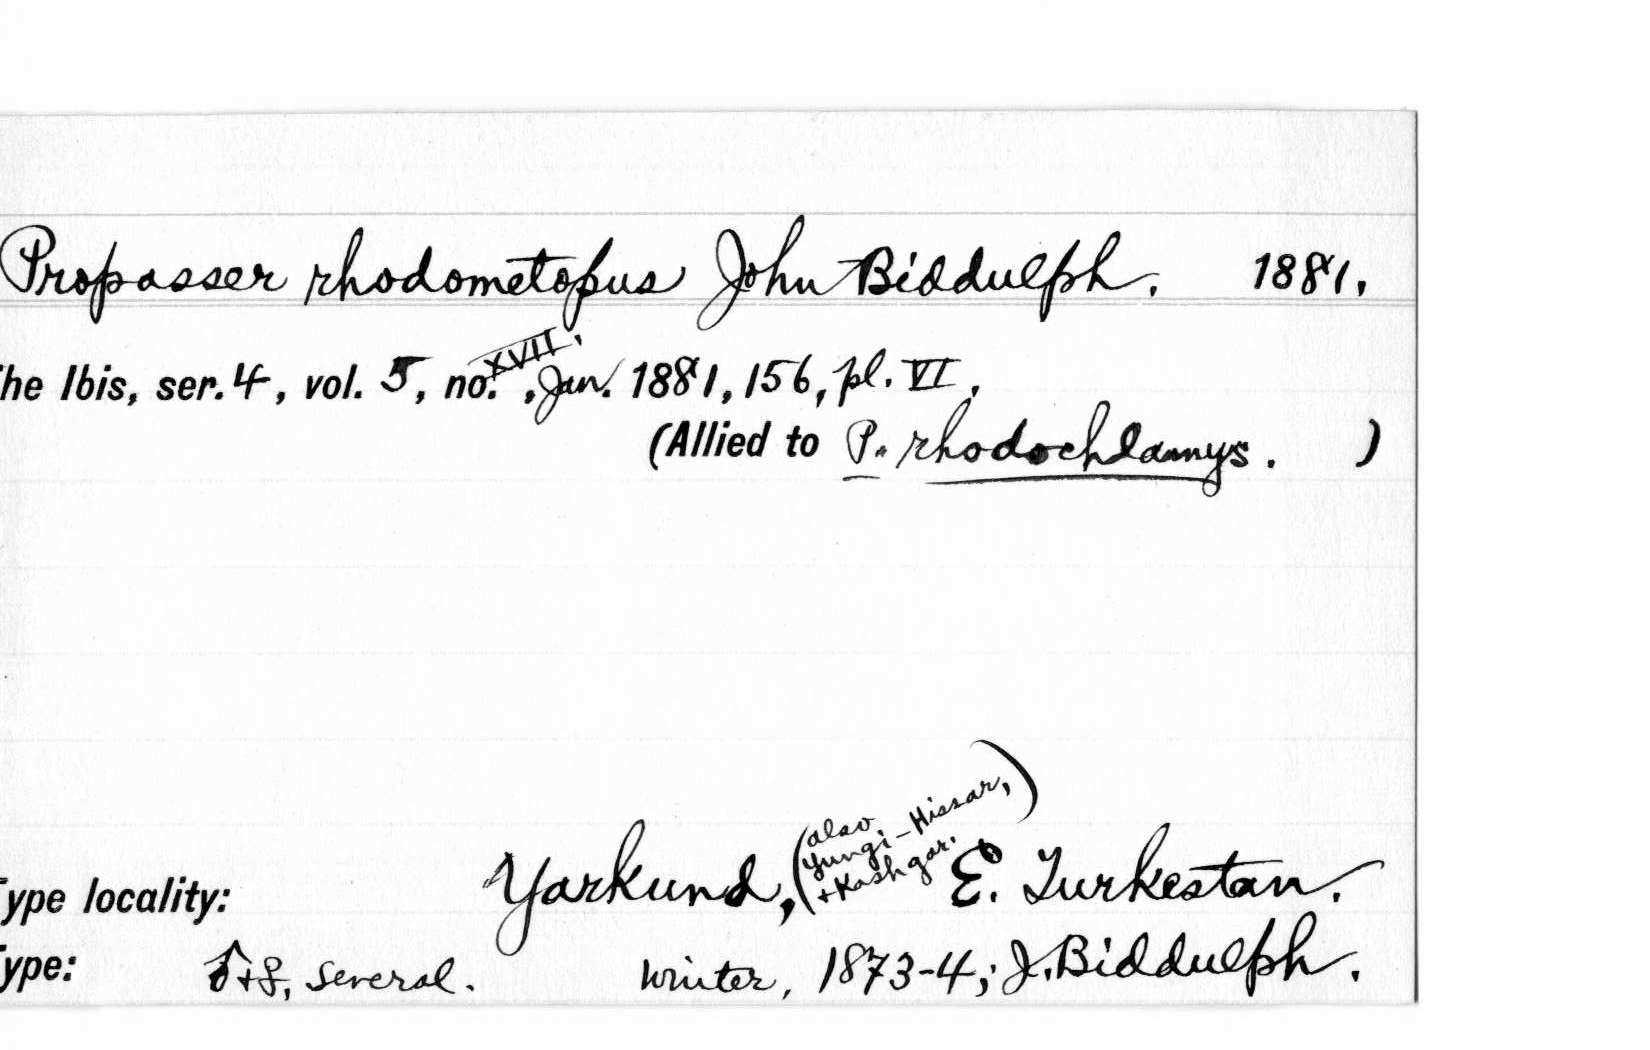 Propasser rhodometopus John Biddulph. 1881.
he Ibis, ser. 4, vol. 5, no. XVII, Jan. 1881, 156, pl. VI.
(Allied to P. rhodochlamys. )
Type locality: Yarkund, (also Yungi-Hissar, + Kashgar.) E. Turkestan.
Type: ♂+♀, several. Winter, 1873-4; J. Biddulph.